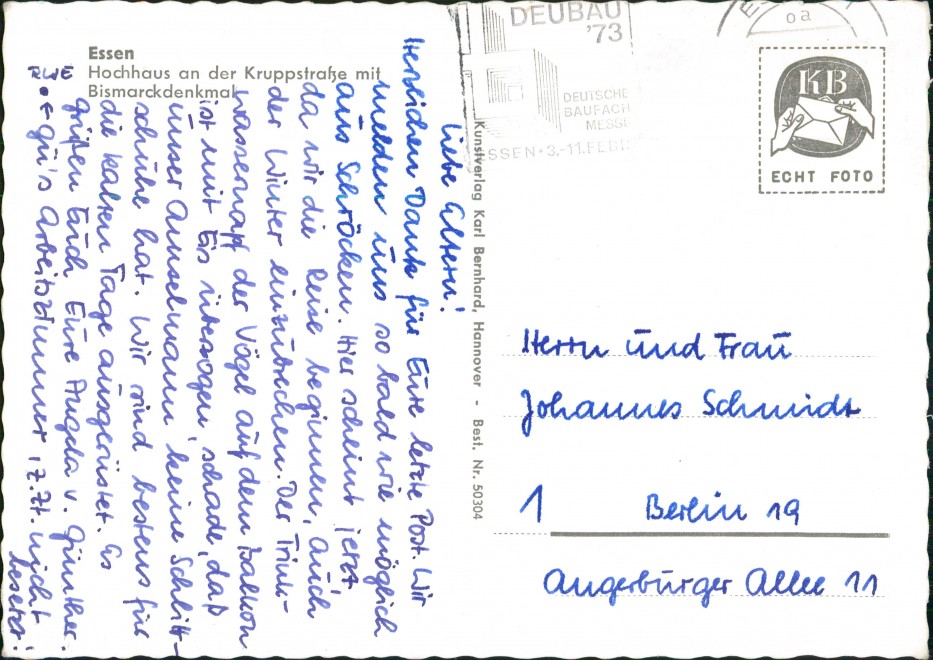 Essen
Hochhaus an der Kruppstraße mit
Bismarckdenkmal
RWE
Liebe Eltern!
Herzlichen Dank für Eure letzte Post. Wir
melden uns so bald wie möglich
aus Schröcken. Hier scheint jetzt,
da wir die Reise beginnen, auch
der Winter einzubrechen. Der Trink-
wassernapf der Vögel auf dem Balkon
ist mit Eis überzogen, schade, daß
unser Amselmann keine Schlitt-
schuhe hat. Wir sind bestens für
die kalten Tage ausgerüstet. Es
grüßen Euch Eure Angela u. Günther.
Gü's Arbeitszimmer, z.Zt. nicht
besetzt!
Kunstverlag Karl Bernhard, Hannover - Best. Nr. 50304
DEUBAU
'73
DEUTSCHE
BAUFACH
MESSE
ESSEN · 3.-11. FEBR
oa
KB
ECHT FOTO
Herrn und Frau
Johannes Schmidt
1 Berlin 19
Angerburger Allee 11